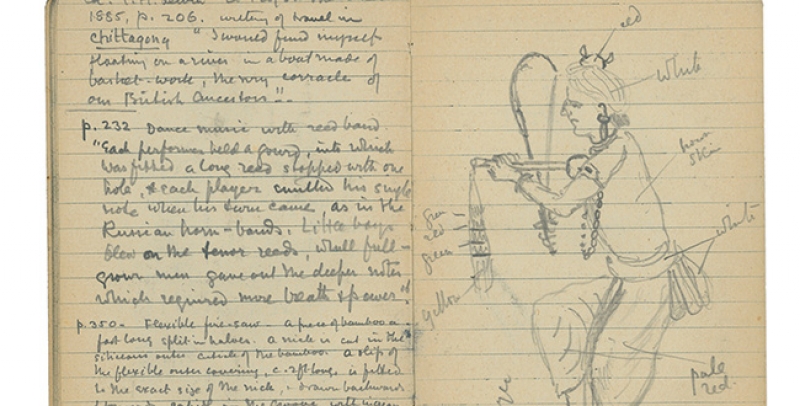 1885, p. 206. writing of travel in
Chittagong "I would find myself
floating on a river in a boat made of
basket-work, the very coracle of
our British Ancestors".
p. 232 Dance music with reed band.
"Each performer held a gourd, into which
was fitted a long reed stopped with one
hole, & each player emitted his single
note when his turn came, as in the
Russian horn-bands. Little boys
blew on the tenor reeds, whilst full-
grown men gave out the deeper notes
which required more breath & power".
p. 350 - Flexible fire-saw - A piece of bamboo a
foot long split in halves. A nick is cut in the
siliceous outer cuticle of the bamboo. A slip of
the flexible outer covering, c. 2ft long, is fitted
to the exact size of the nick, & drawn backwards
red
white
brown
skin
white
green
red
green
yellow
pale
red.